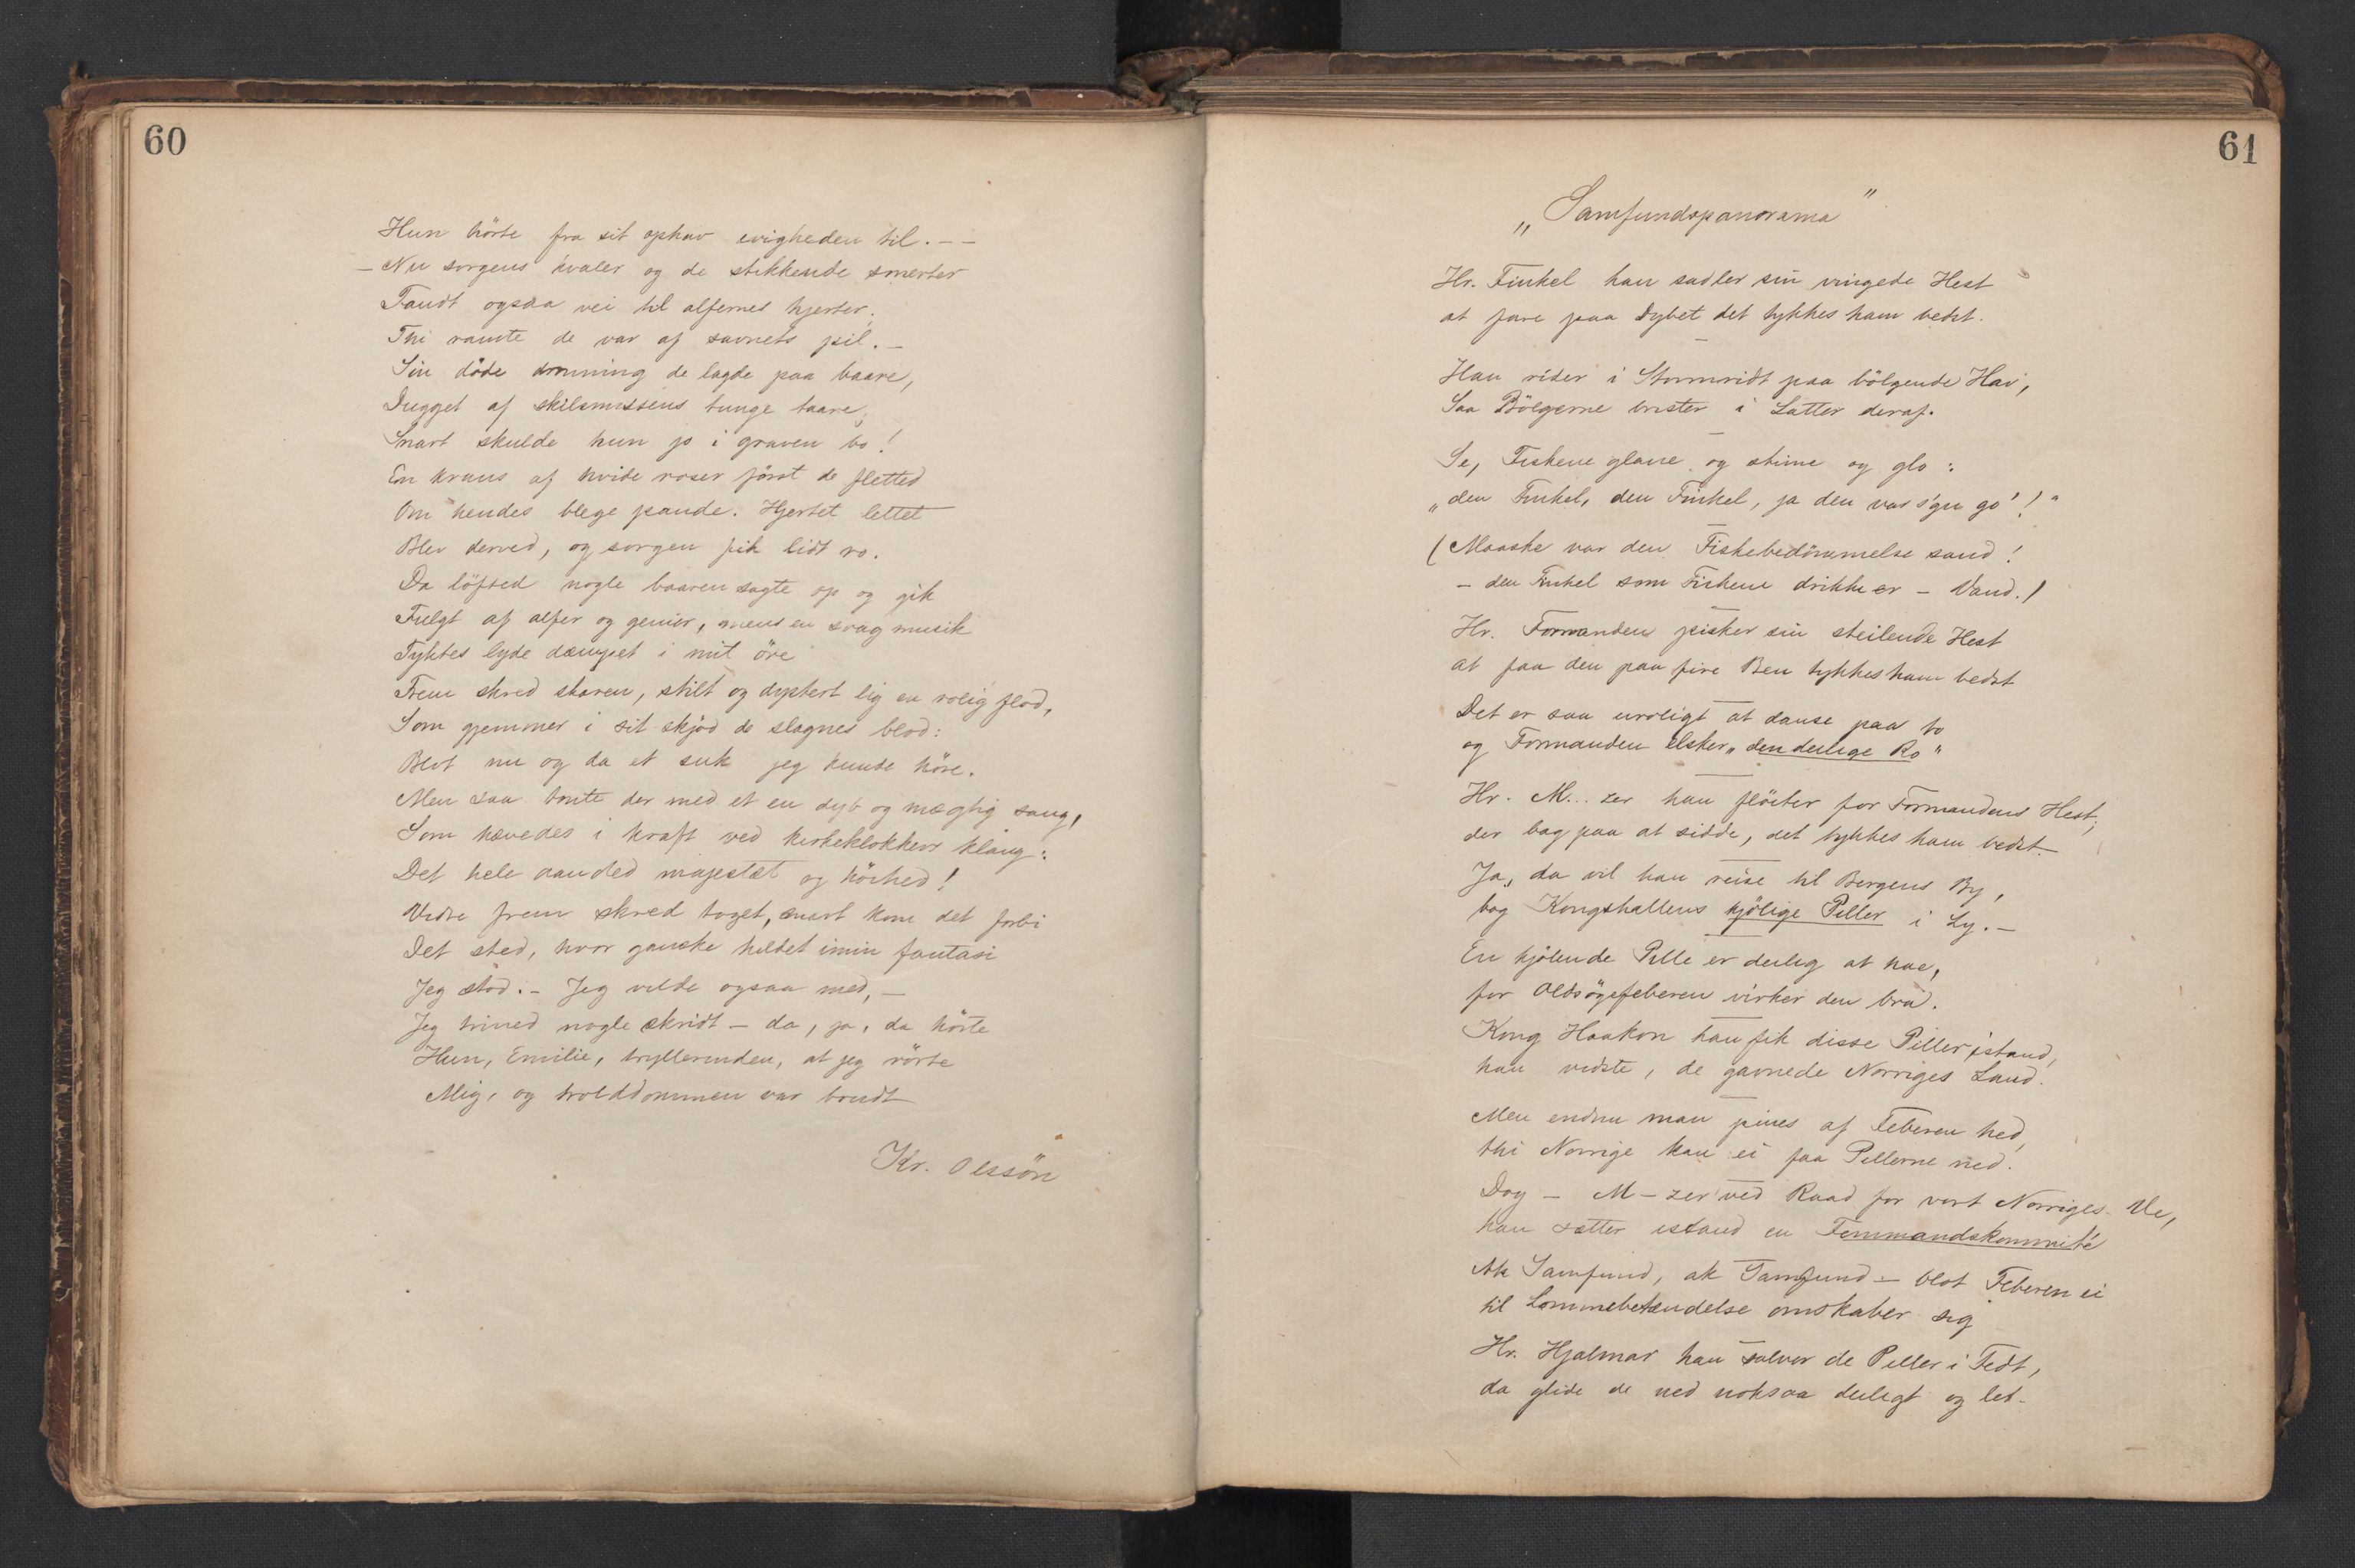 60
Hun hörte fra sit ophav evigheden til. – –
– Nu sorgens kvaler og de stikkende smerter
Fandt ogsaa vei til alfernes hjerter,
Thi ramte de var af savnets pil. –
Sin döde dronning de lagde paa baare,
Dugget af skilsmissens tunge taare;
Snart skulde hun jo i graven bo!
En krans af hvide roser först de fletted
Om hendes blege pande. Hjertet lettet
Blev derved, og sorgen fik lidt ro.
Da löfted nogle baaren sagte op og gik
Fulgt af alfer og genier, mens en svag musik
Tyktes lyde dæmpet i mit öre
Frem skred skaren, stilt og dystert lig en rolig flod,
Som gjemmer i sit skjöd de slagnes blod:
Blot nu og da et suk jeg kunde höre.
Men saa tonte der med et en dyb og mægtig sang,
Som hævedes i kraft ved kirkeklokkers klang:
Det hele aanded majestæt og höihed!
Videre frem skred toget, snart kom det forbi
Det sted, hvor ganske hildet i min fantasi
Jeg stod. – Jeg vilde ogsaa med, –
Jeg trined nogle skridt – da, ja, da hörte
Hun, Emilie, tryllerinden, at jeg rörte
Mig, og trolddommen var brudt
Kr. Olssön
61
„Samfundspanorama"
Hr. Finkel han sadler sin vingede Hest
at fare paa Dybet det tykkes ham bedst.
Han rider i Stormridt paa bölgende Hav,
Saa Bölgerne brister i Latter deraf.
Se, Fiskene glane og stime og glo:
„den Finkel, den Finkel, ja den var s'gu go'!"
(Maaske var den Fiskebedömmelse sand!
– den Finkel som Fiskene drikke er – Vand.)
Hr. Formanden pisker sin steilende Hest
at faa den paa fire Ben tykkes ham bedst
Det er saa uroligt at danse paa to
og Formanden elsker „den deilige Ro"
Hr. M... zer han flöiter for Formandens Hest;
der bag paa at sidde, det tykkes ham bedst.
Ja, da vil han reise til Bergens By,
bag Kongshallens kjölige Piller i Ly. –
En kjölende Pille er deilig at hae,
for Oldsögefeberen virker den bra.
Kong Haakon han fik disse Piller istand,
han vidste, de gavnede Norriges Land.
Men endnu man pines af Feberen hed,
thi Norrige kan ei faa Pillerne ned.
Dog – M – zer ved Raad for vort Norriges Ve,
han sætter istand en Femmandskommité
Ak Samfund, ak Samfund – blot Feberen ei
til Lommebetændelse omskaber sig
Hr. Hjalmar han salver de Piller i Fedt,
da glide de ned noksaa deiligt og let.